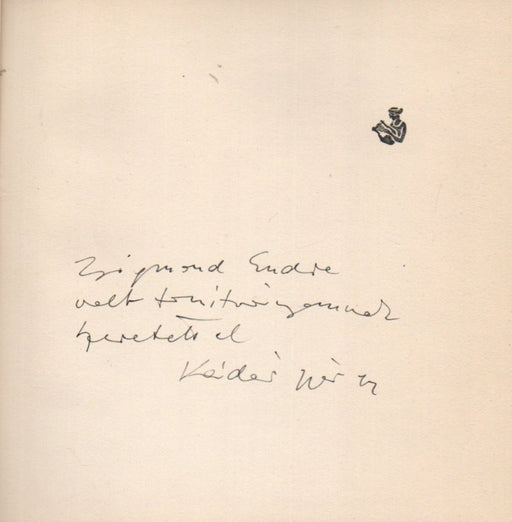 Zsigmond Endre
volt tanítványomnak
szeretettel
Kádár